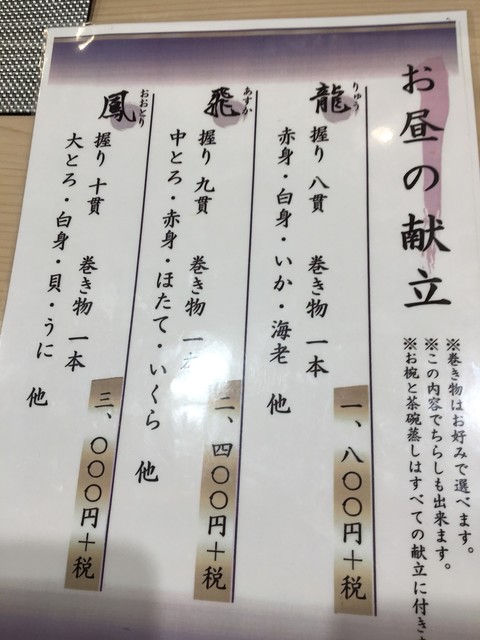 お昼の献立
※巻き物はお好みで選べます。
※この内容でちらしも出来ます。
※お椀と茶碗蒸しはすべての献立に付き
龍 りゅう
握り 八貫 巻き物 一本
赤身・白身・いか・海老 他
一、八〇〇円+税
飛 あすか
握り 九貫 巻き物 一本
中とろ・赤身・ほたて・いくら 他
二、四〇〇円+税
鳳 おおとり
握り 十貫 巻き物 一本
大とろ・白身・貝・うに 他
三、〇〇〇円+税